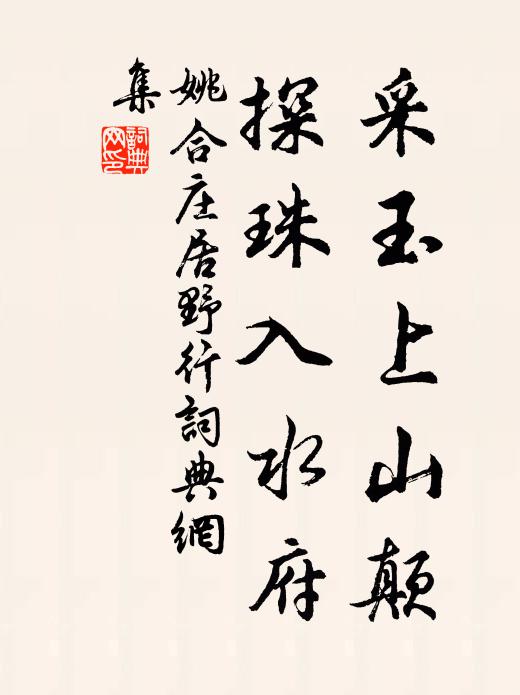 采玉上山颠
探珠入水府
姚合庄居野行詞典網
集
詞典
网印